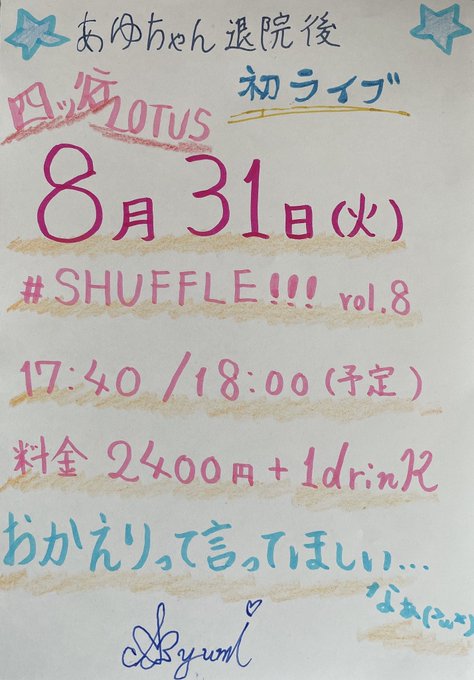 あゆちゃん退院後
初ライブ
四ッ谷LOTUS
8月31日(火)
#SHUFFLE!!! vol.8
17:40/18:00(予定)
料金 2400円+1drinK
おかえりって言ってほしい...
なぁ(>ω<)
Ayumi